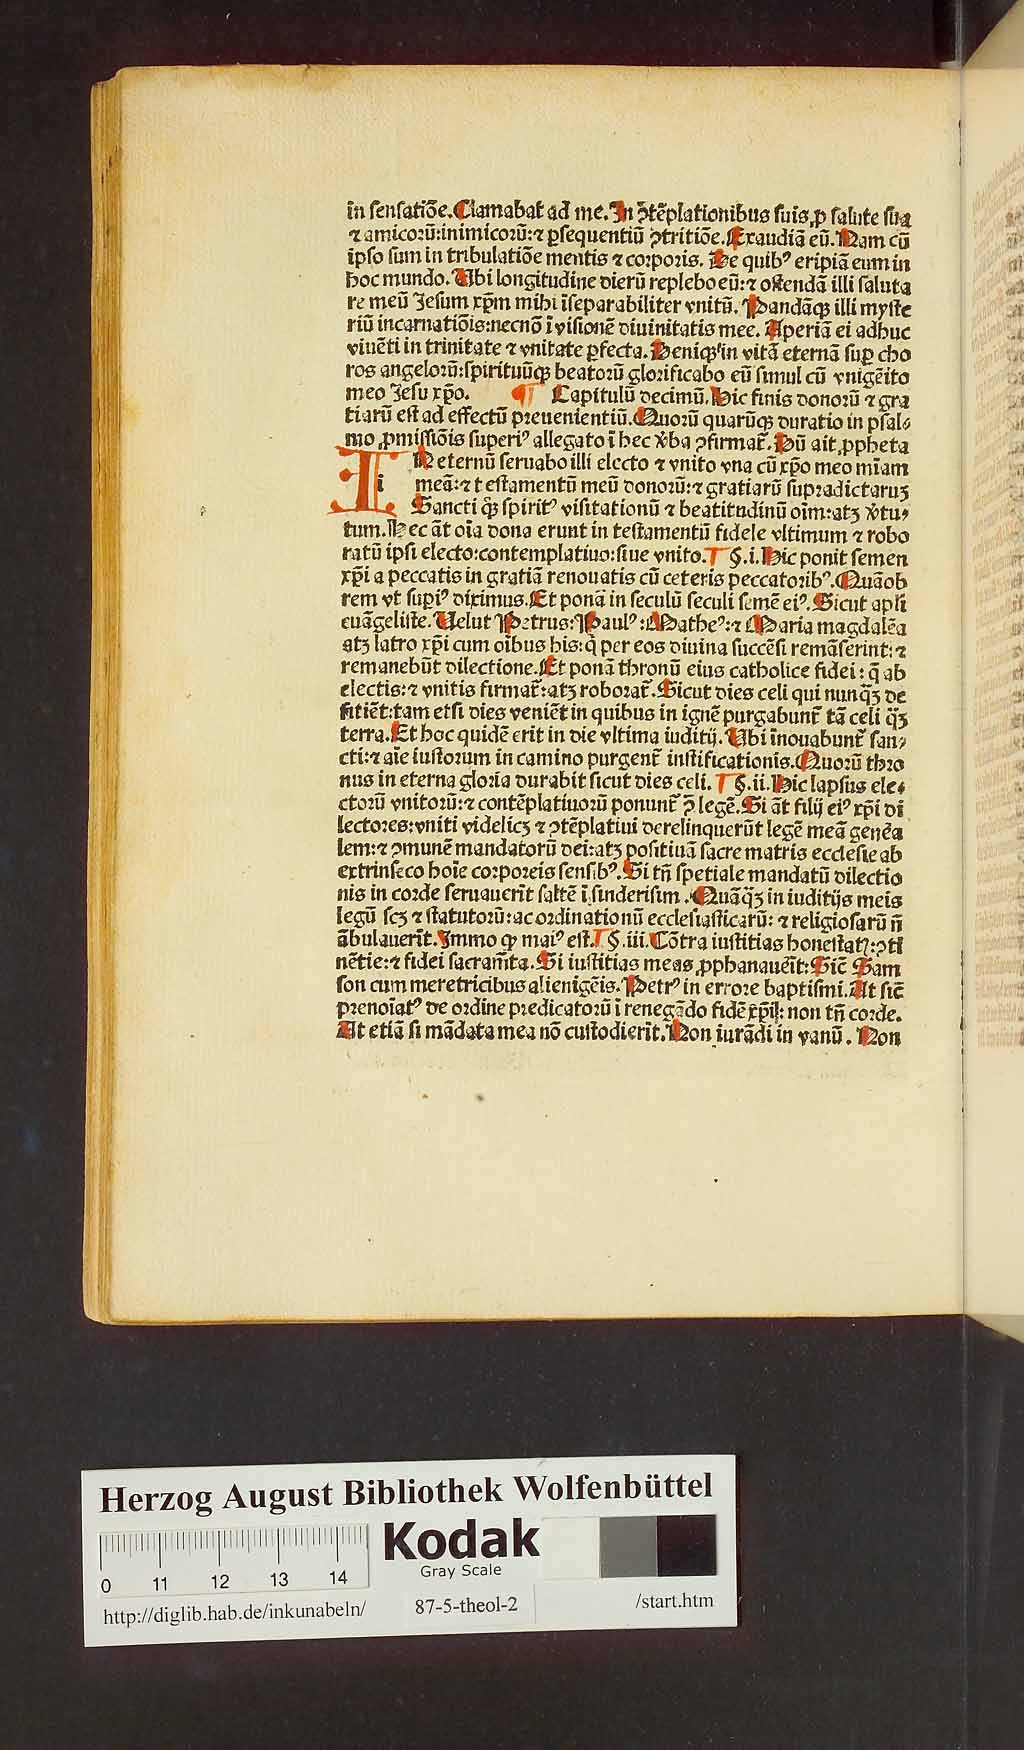 in sensatiõe. Clamabat̃ ad me. In ꝯtẽplationibus suis, ꝓ salute sua
⁊ amicorũ: inimicorũ: ⁊ ꝑsequentiũ ꝯtritiõe. Exaudiã eũ. Nam cũ
ipso sum in tribulatiõe mentis ⁊ corporis. De quibꝰ eripiã eum in
hoc mundo. Ubi longitudine dierũ replebo eũ: ⁊ ostendã illi saluta
re meũ Jesum xp̃m mihi ĩseparabiliter vnitũ. Pandãqꝫ illi myste
riũ incarnatiõis: necnõ ĩ visionẽ diuinitatis mee. Aperiã ei adhuc
viuẽti in trinitate ⁊ vnitate ꝑfecta. Deniqꝫ in vitã eternã suꝑ cho
ros angelorũ: spirituũqꝫ beatorũ glorificabo eũ simul cũ vnigẽito
meo Jesu xp̃o. ¶ Capitulũ decimũ. Hic finis donorũ ⁊ gra
tiarũ est ad effectũ preuenientiũ. Quorũ quarũqꝫ duratio in psal⸗
mo ꝓmissiõis superiꝰ allegato ĩ hec ꝟba ꝯfirmat̃. Dũ ait ꝓpheta
IN eternũ seruabo illi electo ⁊ vnito vna cũ xp̃o meo mĩam
i meã: ⁊ testamentũ meũ donorũ: ⁊ gratiarũ supradictaruꝫ
Sancti q̃ꝫ spiritꝰ visitationũ ⁊ beatitudinũ oĩm: atꝫ ꝟtu⸗
tum. Hec ãt oĩa dona erunt in testamentũ fidele vltimum ⁊ robo
ratũ ipsi electo: contemplatiuo: siue vnito. ¶ §.i. Hic ponit semen
xp̃i a peccatis in gratiã renouatis cũ ceteris peccatoribꝰ. Quãob
rem vt supiꝰ diximus. Et ponã in seculũ seculi semẽ eiꝰ. Sicut apl̃i
euãgeliste. Velut Petrus: Paulꝰ: Matheꝰ: ⁊ Maria magdalẽa
atꝫ latro xp̃i cum oĩbus his: q̃ per eos diuina succẽsi remãserint: ⁊
remanebũt dilectione. Et ponã thronũ eius catholice fidei: q̃ ab
electis: ⁊ vnitis firmat̃: atꝫ roborat̃. Sicut dies celi qui nunq̃ꝫ de
fitiẽt: tam etsi dies veniẽt in quibus in ignẽ purgabunt̃ tã celi q̃ꝫ
terra. Et hoc quidẽ erit in die vltima iuditij. Ubi ĩnouabunt̃ san⸗
cti: ⁊ aĩe iustorum in camino purgent̃ iustificationis. Quorũ thro
nus in eterna gloria durabit sicut dies celi. ¶ §.ii. Hic lapsus ele⸗
ctorũ vnitorũ: ⁊ contẽplatiuorũ ponunt̃ ꝑ legẽ. Si ãt filij eiꝰ xp̃i di
lectores: vniti videlicꝫ ⁊ ꝯtẽplatiui derelinquerũt legẽ meã genẽa
lem: ⁊ ꝯmunẽ mandatorũ dei: atꝫ positiuã sacre matris ecclesie ab
extrinseco hoĩe corporeis sensibꝰ. Si tñ spetiale mandatũ dilectio
nis in corde seruauerĩt saltẽ ĩ sinderisim. Quãq̃ꝫ in iuditijs meis
legũ scꝫ ⁊ statutorũ: ac ordinationũ ecclesiasticarũ: ⁊ religiosarũ ñ
ãbulauerĩt. Immo qꝫ maiꝰ est. ¶ §.iii. Cõtra iustitias honestatꝭ: ꝯti
nẽtie: ⁊ fidei sacram̃ta. Si iustitias meas ꝓphanauẽit: Sic̃ Sam
son cum meretricibus alienigẽis. Petrꝰ in errore baptismi. At sic̃
prenoĩatꝰ de ordine predicatorũ ĩ renegãdo fidẽ xp̃iꝭ: non tñ corde.
At etiã si mãdata mea nõ custodierit. Non iurãdi in vanũ. Non
Herzog August Bibliothek Wolfenbüttel
Kodak
Gray Scale
0 11 12 13 14
http://diglib.hab.de/inkunabeln/ 87-5-theol-2 /start.htm